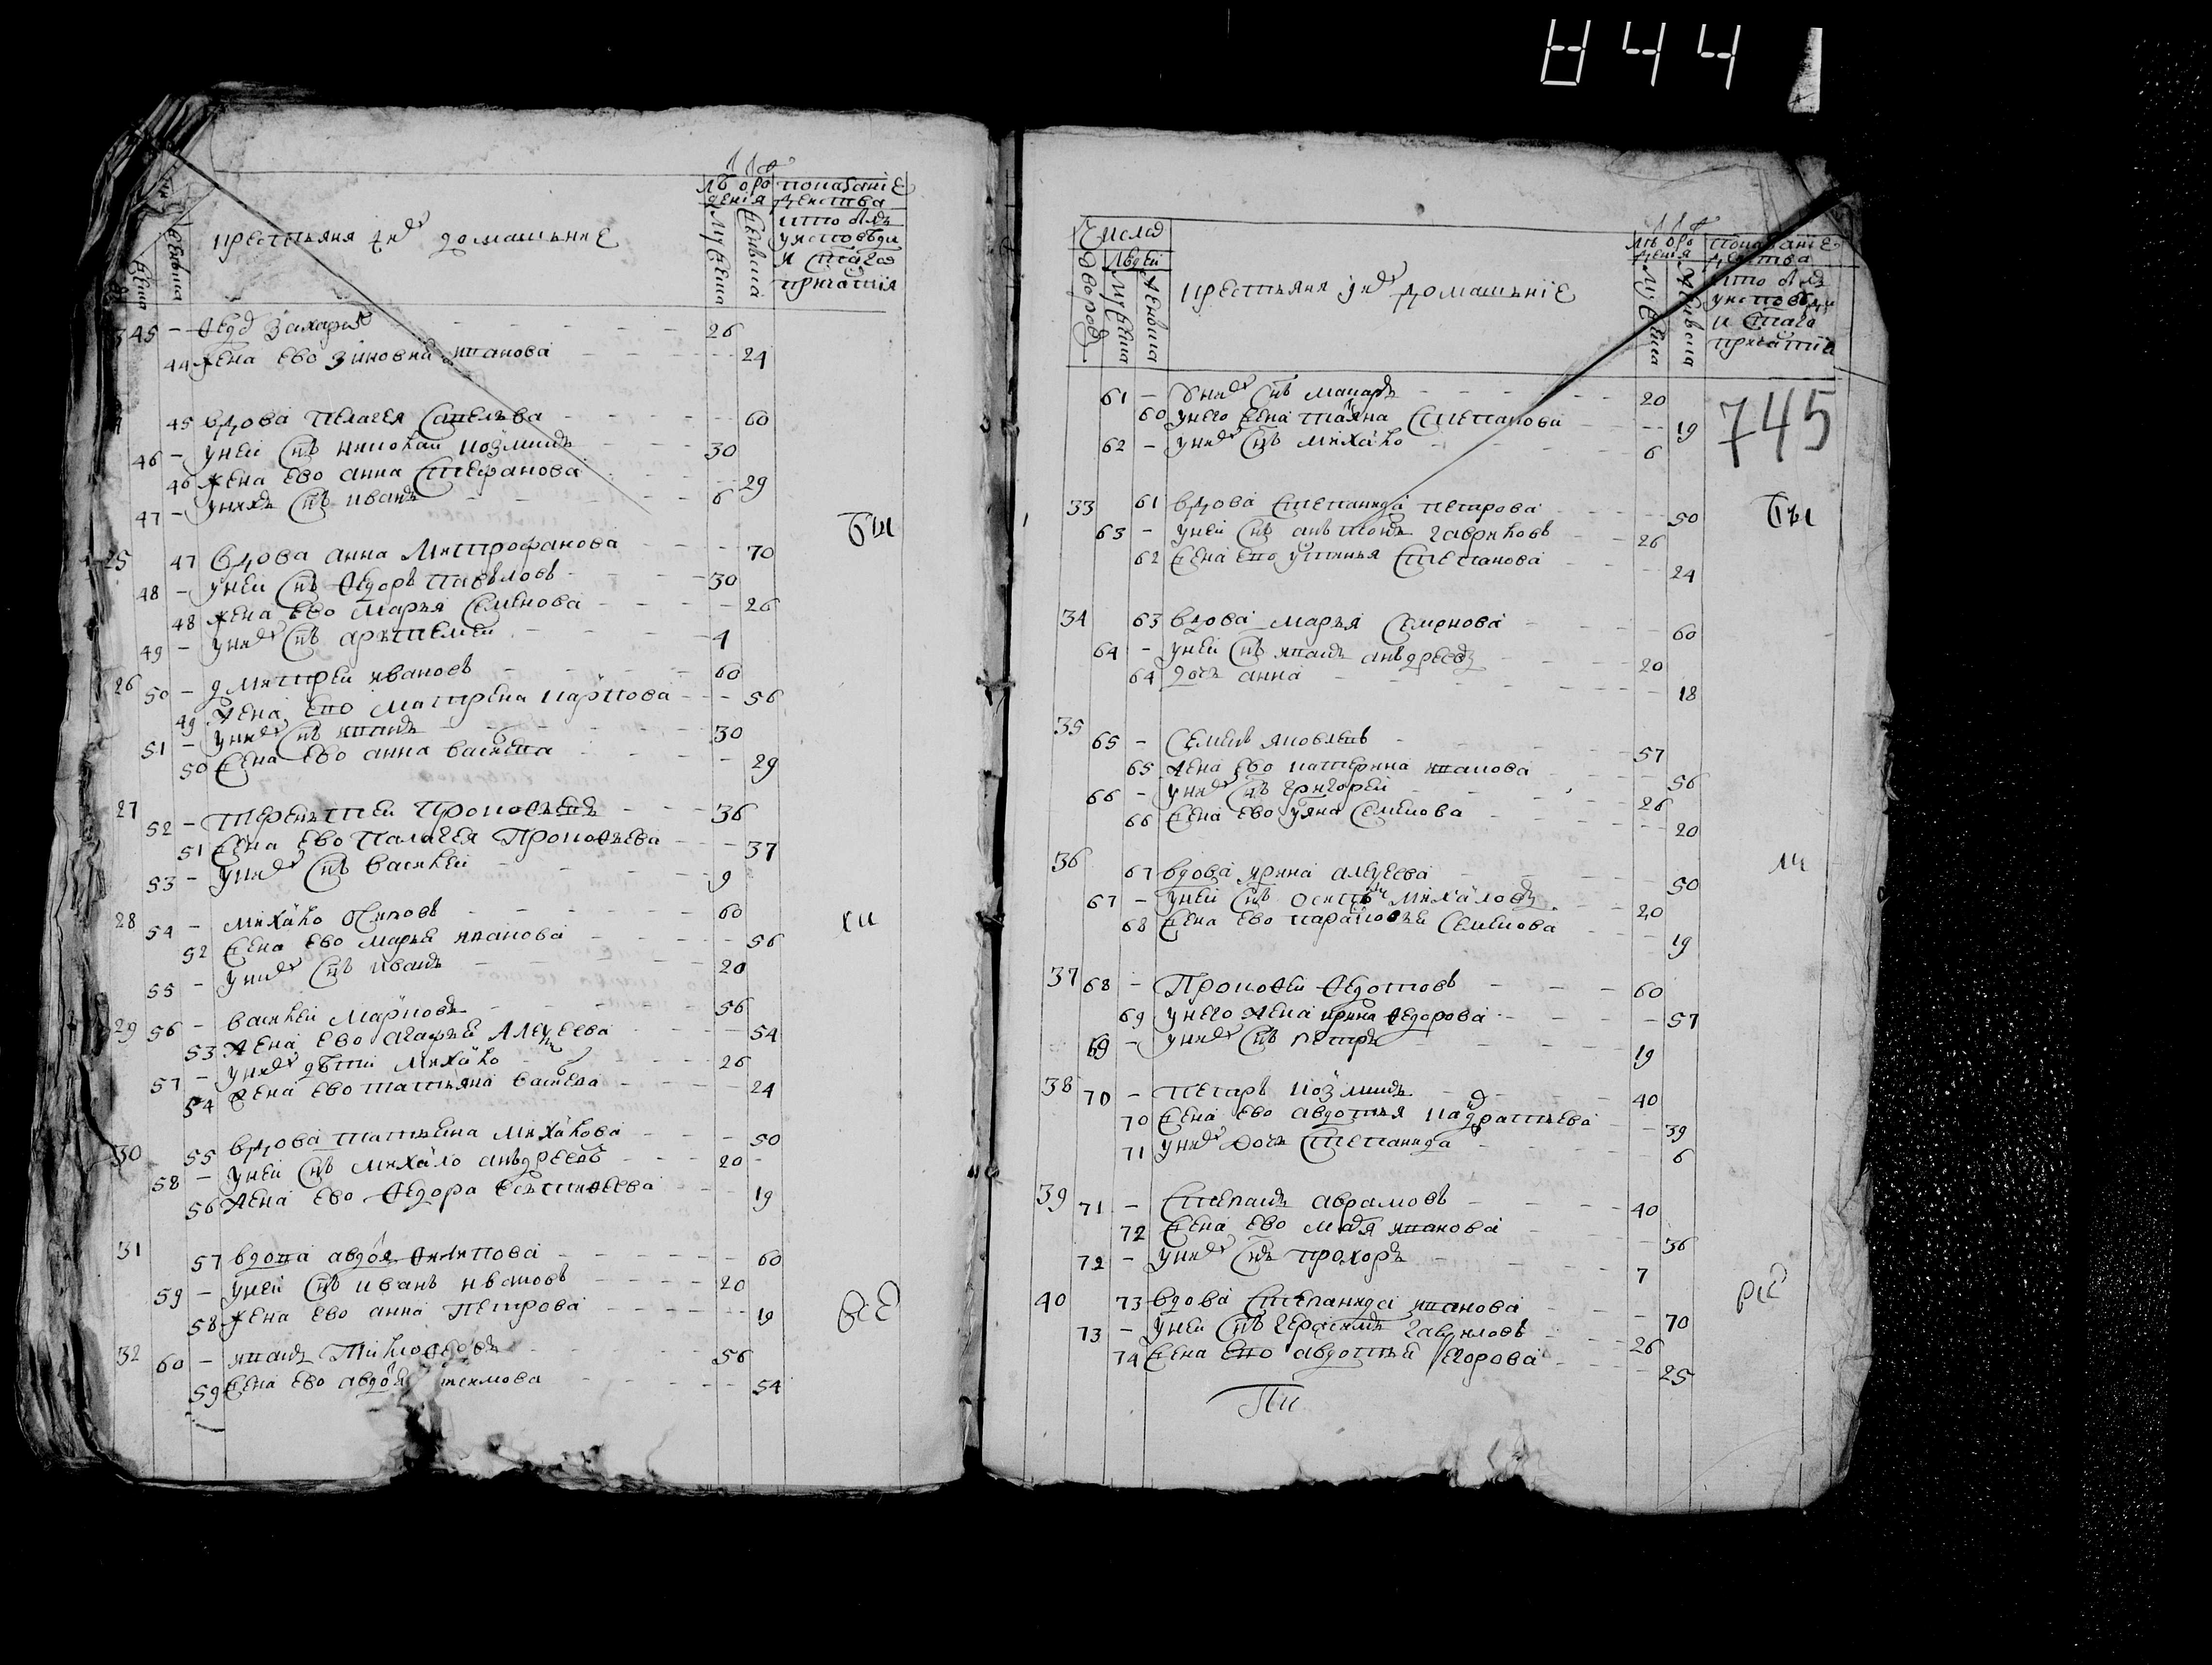 8441
лѣ
оро
показание
дения
действа
кто былъ
у исповѣди
и стаго
причастия
мужеска
женска
крестьяня и ихъ домашьние
45 - Захаръ 26
44 жена ево Зиновия иванова 24
45 вдова Пелагея 60
46 - у ней снъ николай козминъ 30
46 жена ево анна Стефанова 29
47 - у нихъ снъ иванъ 6
были
25 47 вдова анна Митрофанова 70
48 - у ней снъ Федоръ павъловъ 30
48 жена ево Марья Семенова 26
49 - у нихъ снъ арътемей 4
26 50 - дмитрей ивановъ 60
49 жена ево матрена карпова 56
51 - у нихъ снъ иванъ 30
50 жена ево анна васильева 29
27 52 - Терентей Прокофьевъ 36
51 жена ево Палагея Прокофьева 37
53 - у нихъ снъ василей 9
28 54 - михайло осиповъ 60
52 жена ево марья иванова 56
55 - у нихъ снъ иванъ 20
29 56 - василей Марковъ 56
53 жена ево агафья Алексеева 54
57 - у нихъ дѣти михайло 26
54 жена ево татьяна васильева 24
30 55 вдова татьяна михайлова 50
58 - у ней снъ михайло анъдреевъ 20
56 жена ево Федора 19
31 57 вдова авдотья филипова 60
59 - у ней снъ иванъ ивановъ 20
58 жена ево анна Петрова 19
всѣ
32 60 - иванъ 56
59 жена ево авдотья 54
числа
людей
дворовъ
мужеска
женска
крестьяня и ихъ домашьние
лѣ оро
дения
мужеска
женска
показание
действа
кто былъ
у исповѣди
и стаго
причастия
745
61 - у нихъ снъ макаръ 20
60 у него жена татьяна Степанова 19
62 - у нихъ снъ михайло 6
33 61 вдова Степанида петрова 50
были
63 - у ней снъ анътонъ гавриловъ 26
62 жена ево устинья Степанова 24
34 63 вдова марья Семенова 60
64 - у ней снъ иванъ анъдреевъ 20
64 дочь анна 18
35 65 - Семенъ яковлевъ 57
65 жена ево катерина иванова 56
66 - у нихъ снъ григорей 26
66 жена ево уяна Семенова 20
36 67 вдова ирина алексеева 50
67 - у ней снъ осипъ михайловъ 20
68 жена ево парасковья Семенова 19
37 68 - Прокофей Федотовъ 60
69 у него жена ирина федорова 57
69 - у нихъ снъ петръ 19
38 70 - петръ козминъ 40
70 жена ево авдотья кадратьева 39
71 у нихъ дочь Степанида 6
39 71 - Степанъ аврамовъ 40
72 жена ево марья иванова 36
72 - у нихъ снъ прохоръ 7
40 73 вдова Степанида иванова 70
всѣ
73 - у ней снъ герасимъ гавриловъ 26
74 жена ево авдотья Егорова 25